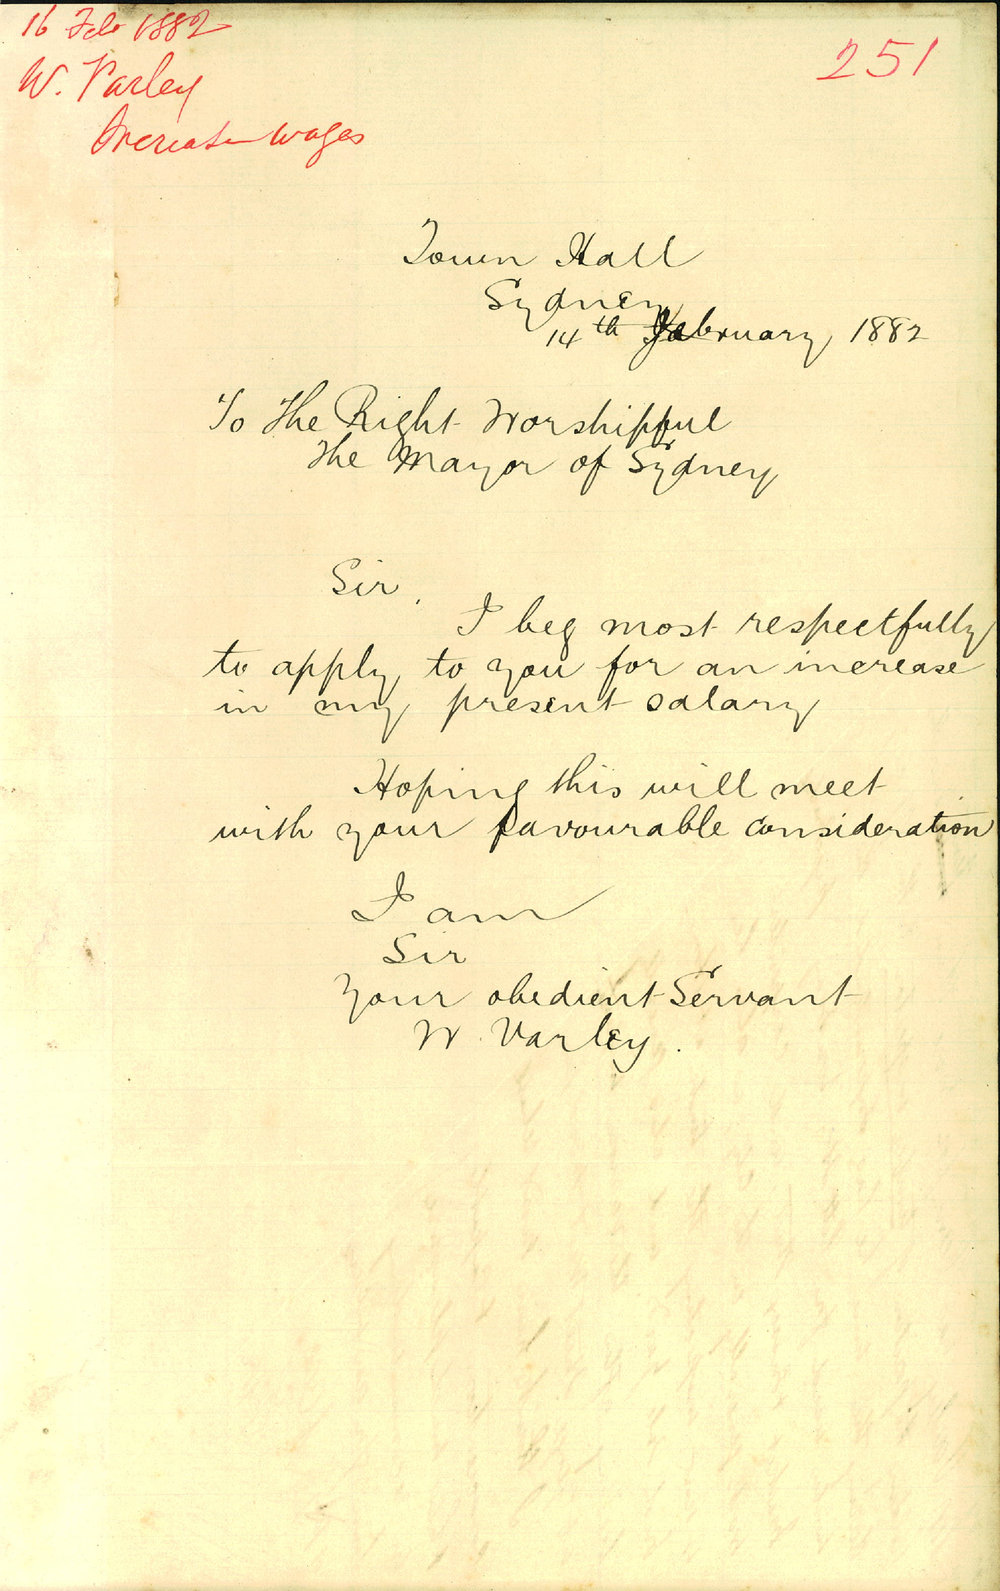 16 Feb 1882
W. Varley
Increase wages
251
Town Hall
Sydney
14th February 1882
To The Right Worshipful
The Mayor of Sydney
Sir,
I beg most respectfully
to apply to you for an increase
in my present salary
Hoping this will meet
with your favourable consideration
I am
Sir
Your obedient Servant
W. Varley.